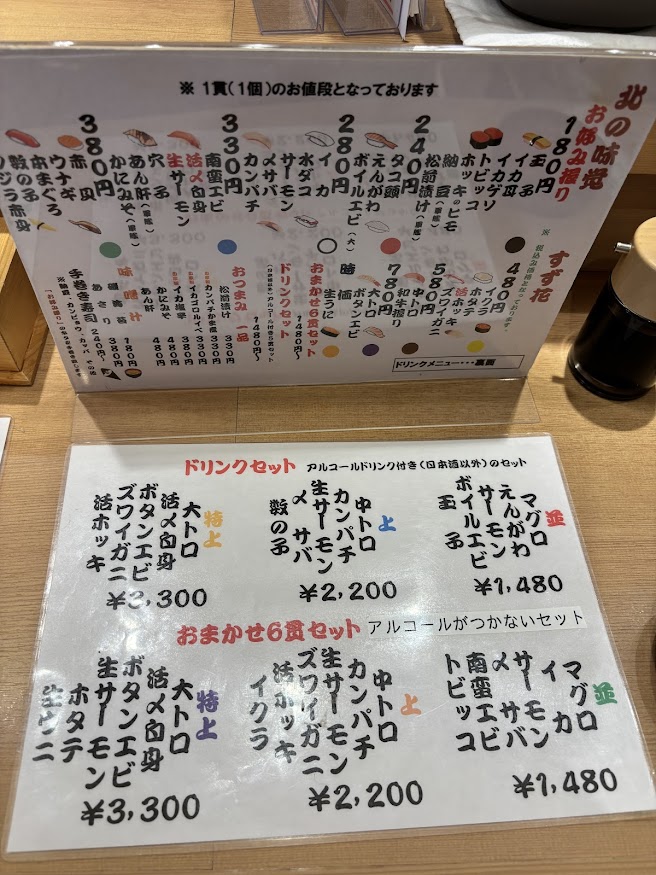 ※ 1貫(1個)のお値段となっております
北の味覚
お好み握り
すず花
180円
玉子
イカ耳
イカゲソ
トビッコ
ホッキのヒモ
納豆(軍艦)
松前漬け(軍艦)
240円
タコ頭
えんがわ
ボイルエビ(大)
280円
イカ
水ダコ
サーモン
〆サバ
カンパチ
330円
南蛮エビ
活〆白身
生サーモン
穴子
あん肝(軍艦)
かにみそ(軍艦)
380円
赤貝
ウナギ
本まぐろ
数の子
クジラ赤身
480円
イクラ
ホタテ
活ホッキ
ズワイガニ
580円
中トロ
和牛握り
780円
大トロ
ボタンエビ
生うに
時価
おまかせ6貫セット
1480円〜
ドリンクセット
(日本酒以外)アルコール付き5貫セット
1480円〜
おつまみ一品
松前漬け 330円
カンパチかま塩 330円
イカゴロルイベ 330円
イカ塩辛 380円
かにみそ 480円
あん肝 480円
味噌汁
あさり 380円
手巻き寿司 240円〜
ドリンクメニュー・・・裏面
ドリンクセット アルコールドリンク付き(日本酒以外)のセット
並
マグロ
えんがわ
サーモン
ボイルエビ
玉子
¥1,480
上
中トロ
カンパチ
生サーモン
〆サバ
数の子
¥2,200
特上
大トロ
活〆白身
ボタンエビ
ズワイガニ
活ホッキ
¥3,300
おまかせ6貫セット アルコールがつかないセット
並
マグロ
イカ
サーモン
〆サバ
南蛮エビ
トビッコ
¥1,480
上
中トロ
カンパチ
生サーモン
ズワイガニ
活ホッキ
イクラ
¥2,200
特上
大トロ
活〆白身
ボタンエビ
生サーモン
ホタテ
生ウニ
¥3,300